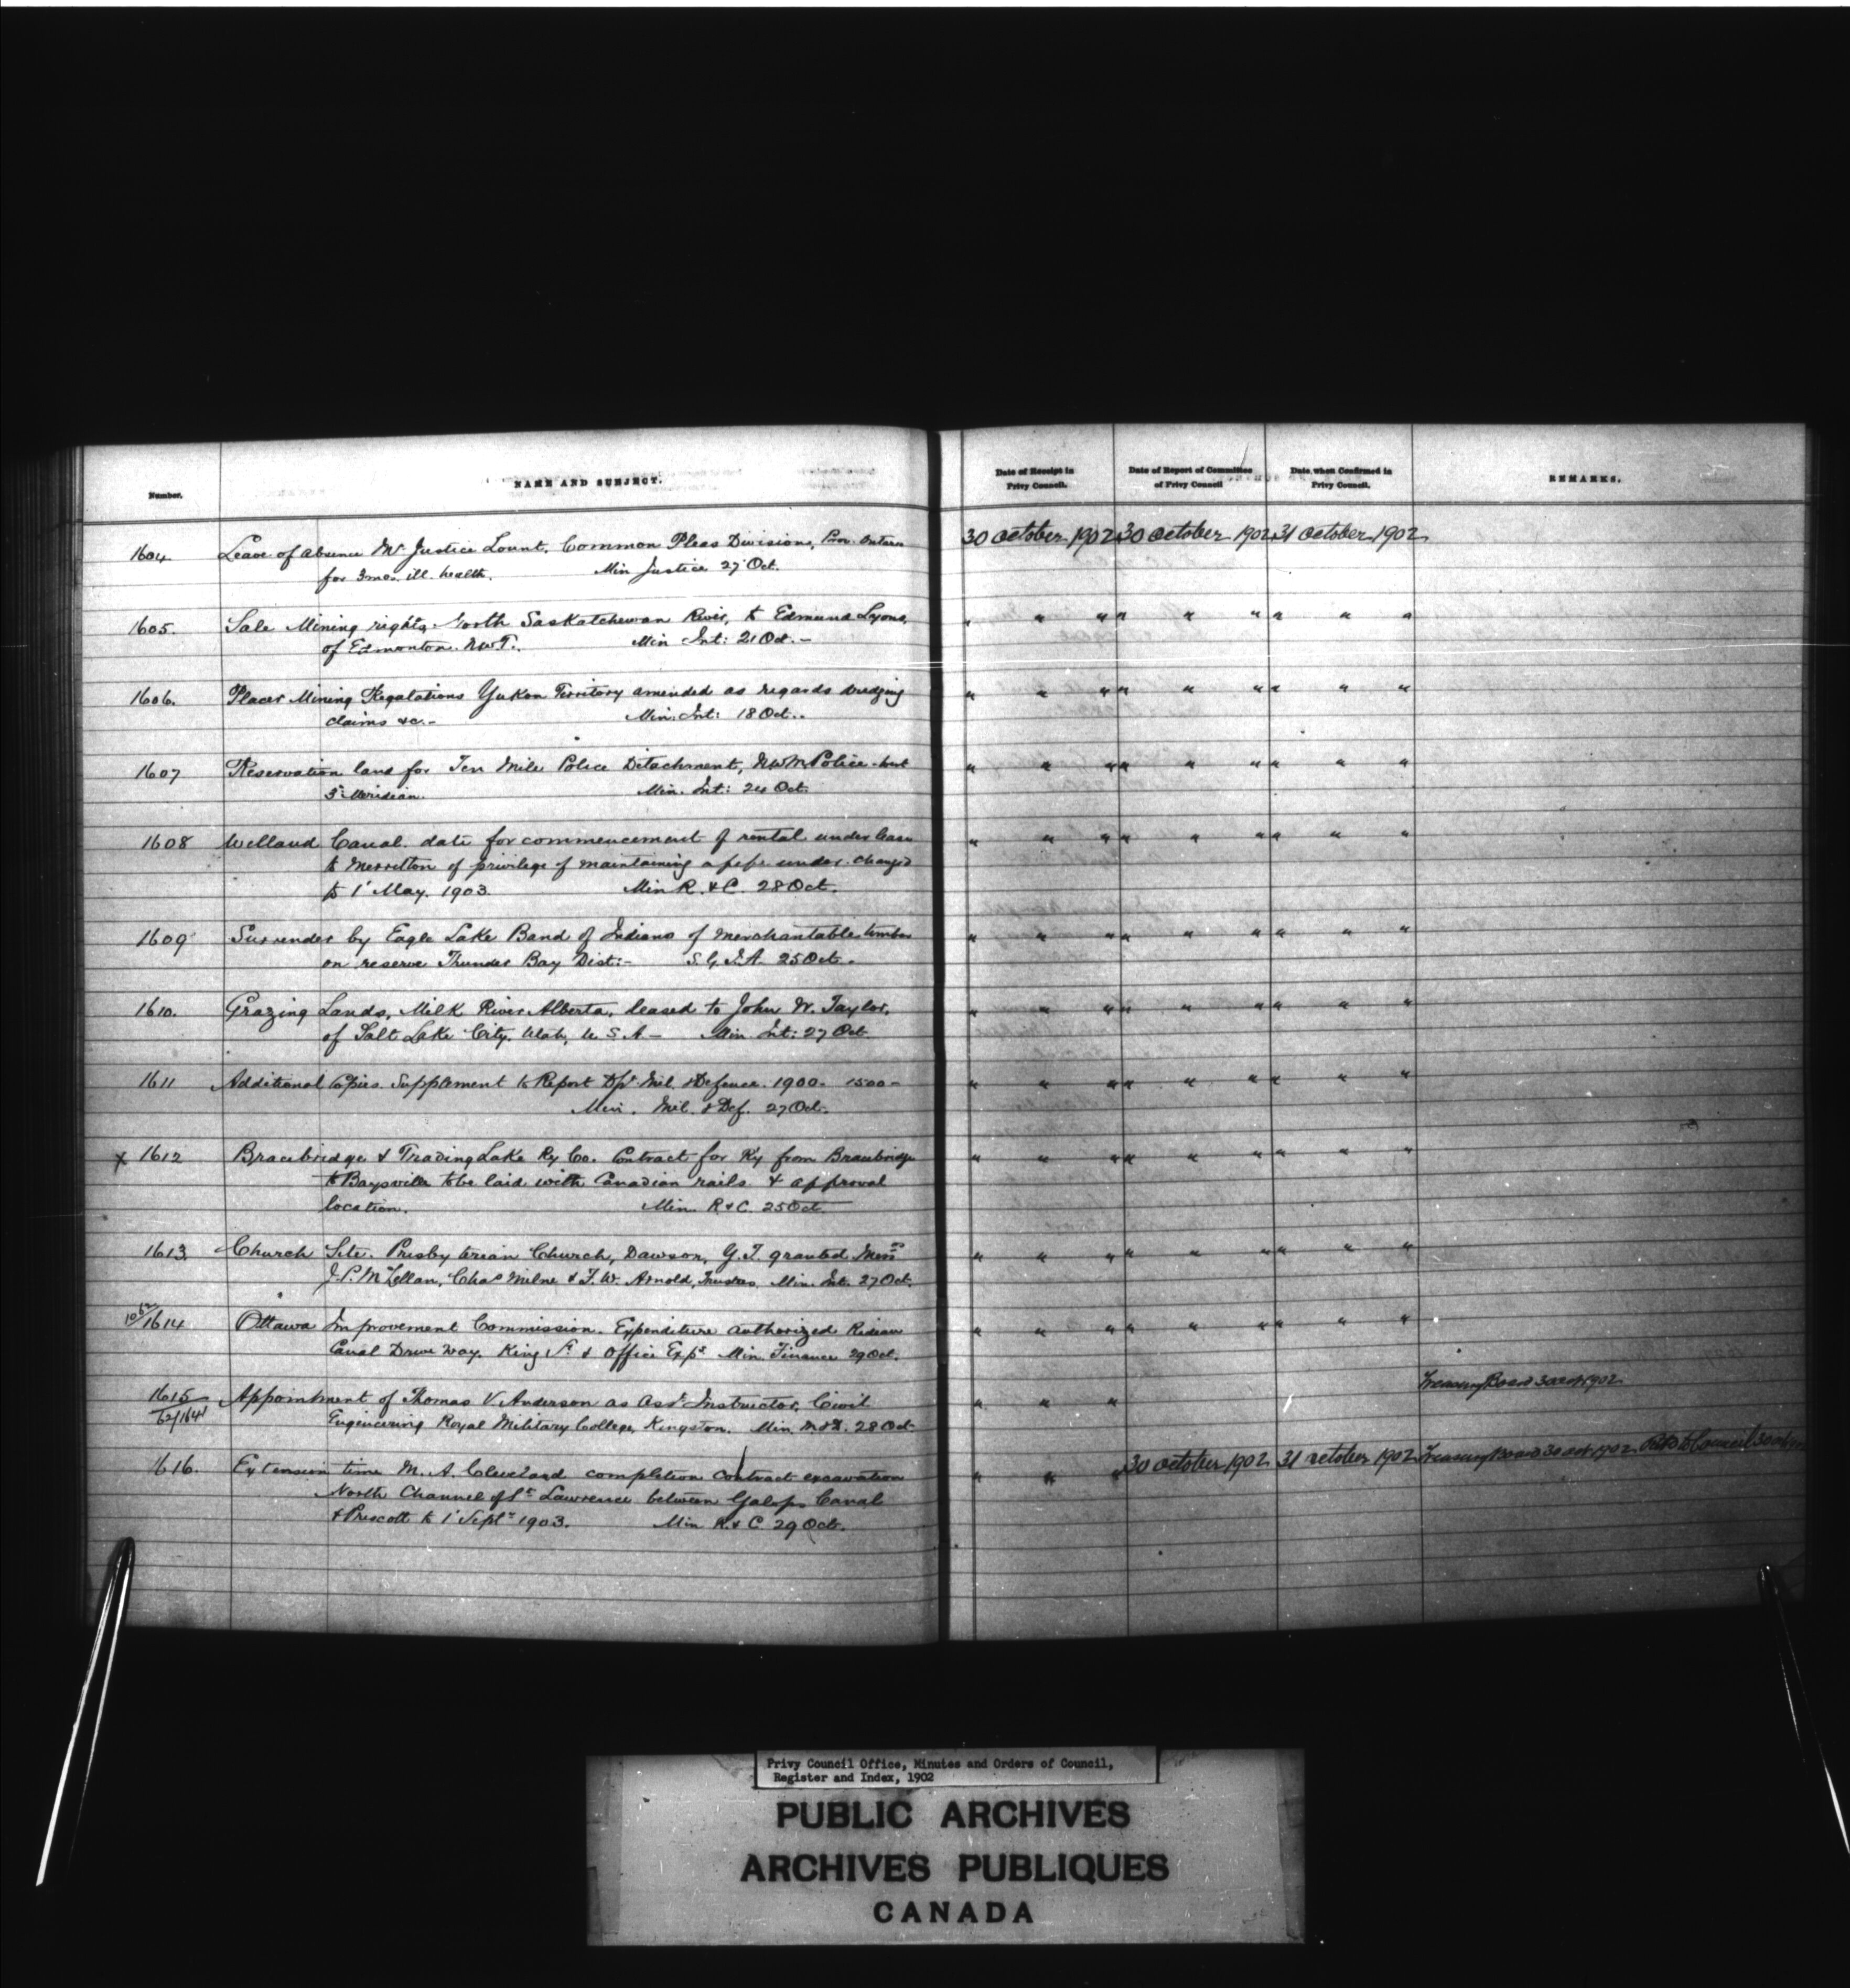 Number.
NAME AND SUBJECT.
Date of Receipt in Privy Council.
Date of Report of Committee of Privy Council
Date when Confirmed in Privy Council.
REMARKS.
1604 Leave of absence Mr Justice Lount, Common Pleas Divisions, Prov. Ontario 30 October 1902 30 October 1902 31 October 1902
for 3 mos. ill health. Min Justice 27 Oct.
1605. Sale Mining rights, North Saskatchewan River, to Edmund Lyons, " " " " " " " " "
of Edmonton. NWT. Min Int: 21 Oct. -
1606. Placer Mining Regulations Yukon Territory amended as regards dredging " " " " " " " " "
claims &c. - Min. Int: 18 Oct..
1607 Reservation land for Ten Mile Police Detachment, NWM Police - West " " " " " " " " "
3d Meridian. Min. Int: 24 Oct.
1608 Welland Canal. date for commencement of rental under lease " " " " " " " " "
to Merritton of privilege of maintaining a pipe under. changed
to 1' May. 1903. Min R. & C. 28 Oct.
1609 Surrender by Eagle Lake Band of Indians of merchantable timber " " " " " " " " "
on reserve Thunder Bay Dist: - S. G. I. A. 25 Oct.
1610. Grazing Lands, Milk River Alberta, leased to John W. Taylor, " " " " " " " " "
of Salt Lake City. Utah, U. S. A - Min. Int: 27 Oct.
1611 Additional Copies. Supplement to Report Dpt Mil. & Defence. 1900. 1500 - " " " " " " " " "
Min. Mil. & Def. 27 Oct.
x 1612 Bracebridge & Trading Lake Ry Co. Contract for Ry from Bracebridge " " " " " " " " "
to Baysville to be laid with Canadian rails & approval
location. Min. R & C. 25 Oct.
1613 Church Site. Presbyterian Church, Dawson, Y. T. granted Messrs " " " " " " " " "
J. P. McLellan, Chas Milne & F. W. Arnold, Trustees Min. Int. 27 Oct.
1614 Ottawa Improvement Commission. Expenditure authorized Rideau " " " " " " " " "
Canal Drive Way. King St & Office Exps Min. Finance 29 Oct.
1615 Appointment of Thomas V. Anderson as Asst Instructor, Civil " " " Treasury Board 30 Oct 1902
62/164 Engineering Royal Military College, Kingston. Min. M & D. 28 Oct
1616. Extension time M. A. Cleveland completion contract excavation " " " 30 October 1902 31 October 1902 Treasury Board 30 Oct 1902. to Council 30 Oct
North Channel of St Lawrence between Galops Canal
& Prescott to 1' Sept 1903. Min R. & C 29 Oct.
Privy Council Office, Minutes and Orders of Council,
Register and Index, 1902
PUBLIC ARCHIVES
ARCHIVES PUBLIQUES
CANADA